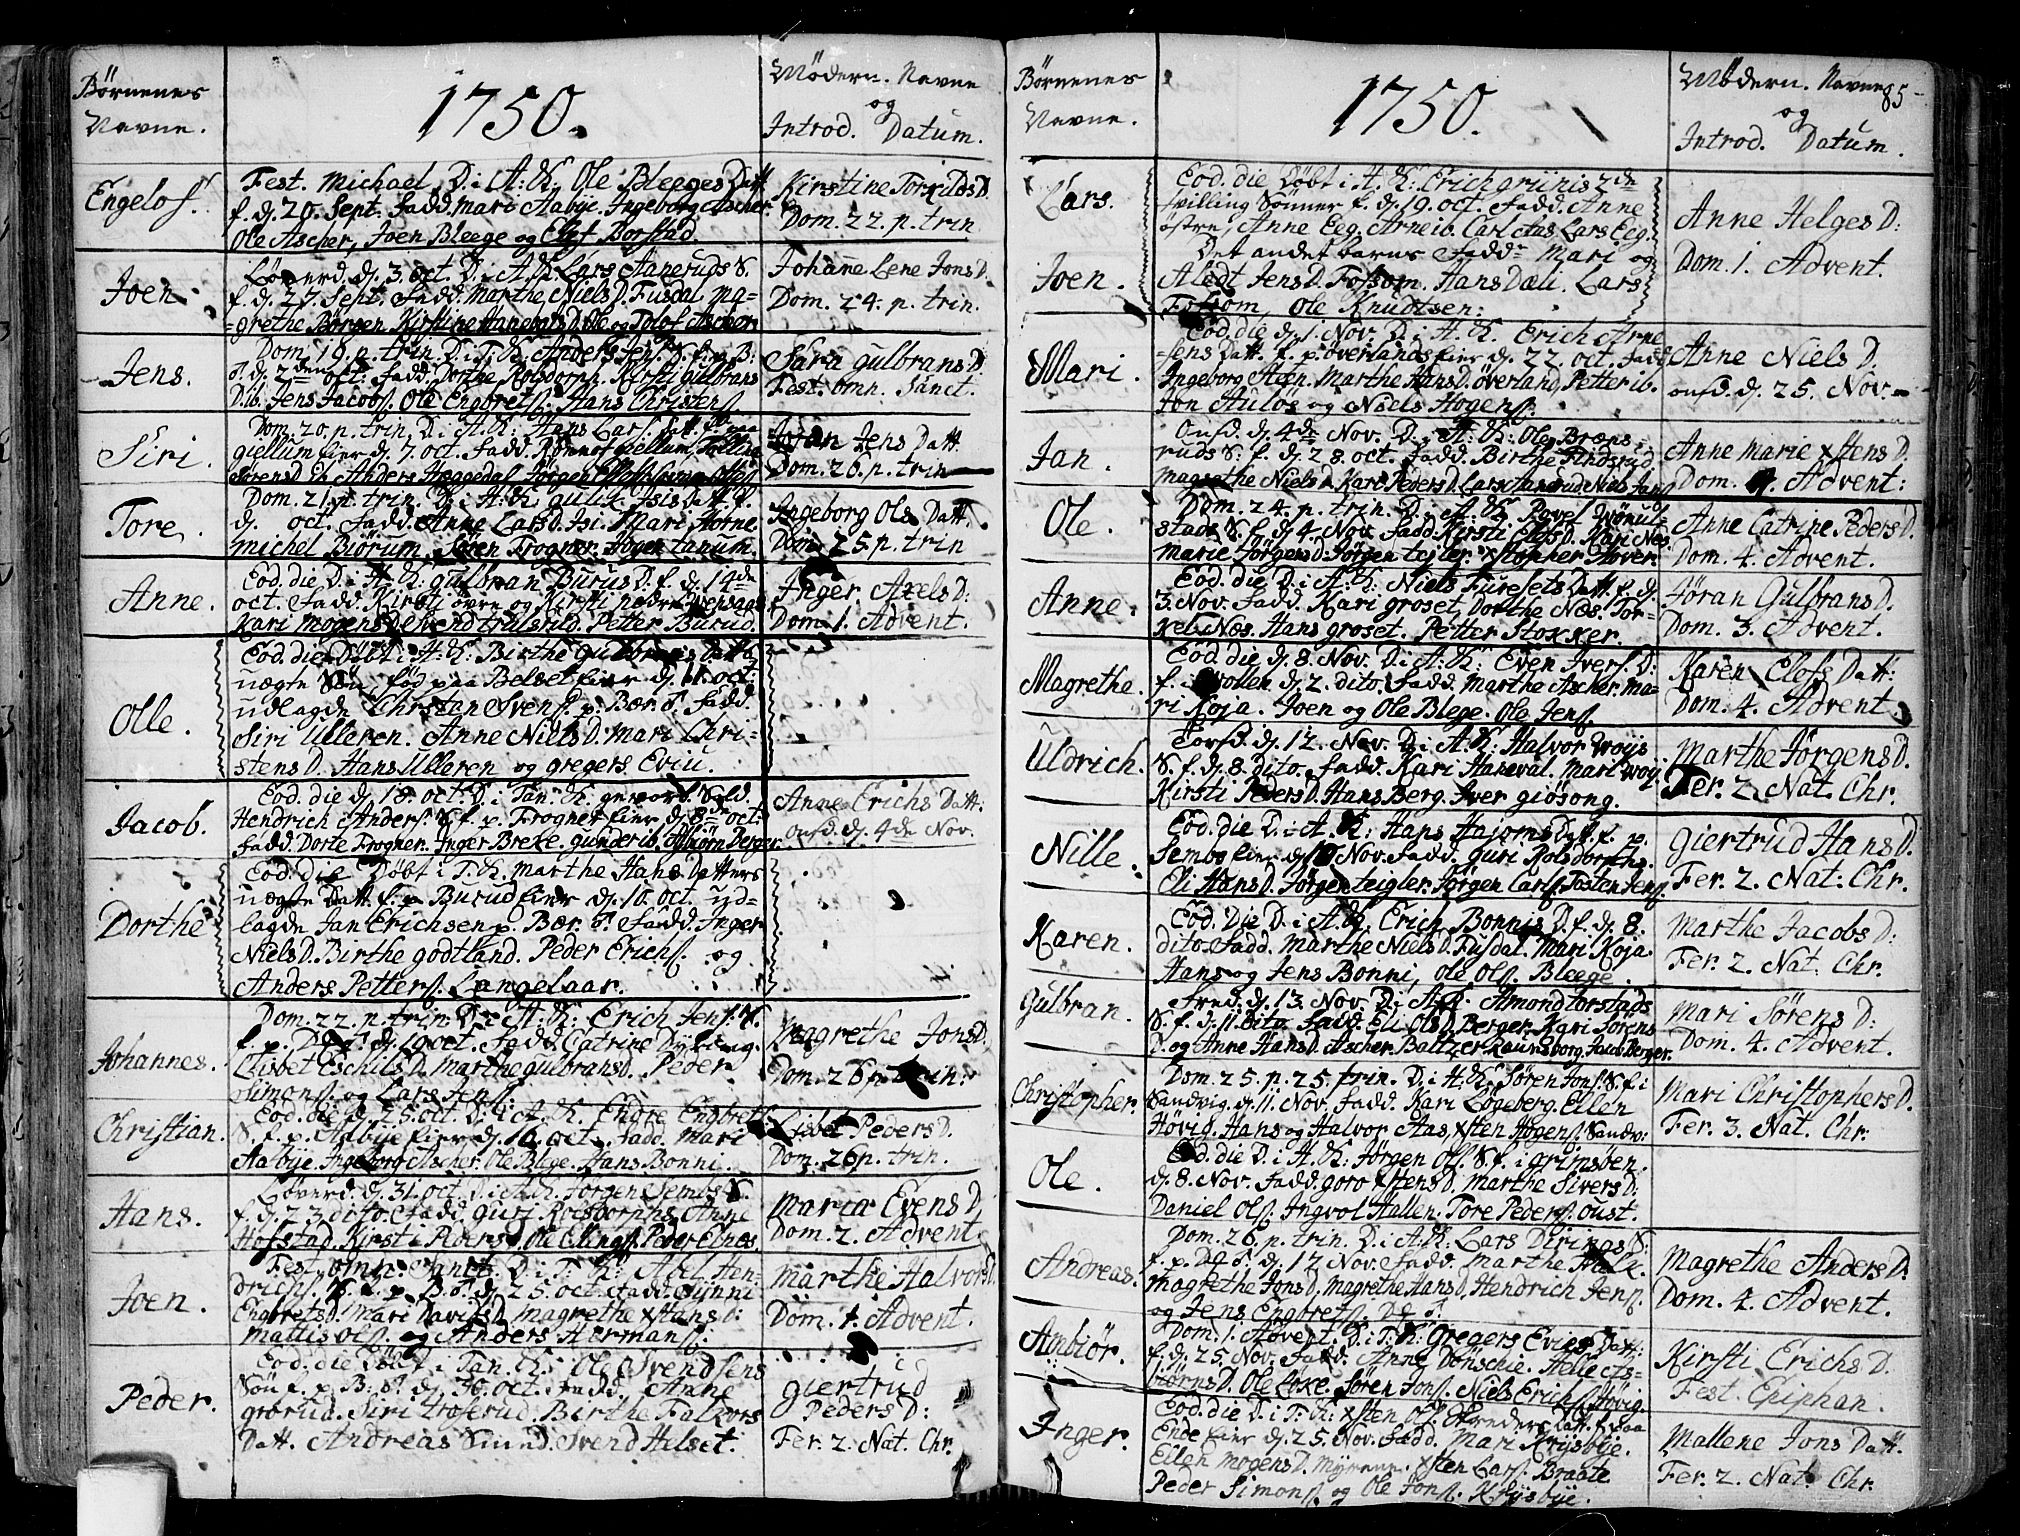 Börnenes
Navne.
1750.
Mödern. Navne
og
Introd. Datum.
Engelos.
Fest. Michael D. i A. K. Ole Bleeges Datt.
f. d. 20. Sept. Fadd. Mari Aabye. Ingeborg Ascher
Ole Ascher, Joen Bleege og Elef Borstad
Kirstine Torkilds D.
Dom. 22. p. trin
Joen
Löverd. d. 3. oct. D. i A. K. Lars Aaneruds S.
f. d. 27. Sept. Fadd. Marthe Niels D. Fusdal Ma-
grethe Börgen Kirstine Ole og Ascher
Johane Lene Jons D.
Dom. 24. p. trin.
Jens.
Dom. 19. p. trin. D. i T. K. Anders Jens. S. f. p. B:
d. 2den oct. Fadd. Dorthe Rolsdorph. Kirsti Gulbrans
D. ib. Jens Jacobs. Ole Engbrets. Hans Christens.
Sara Gulbrans D.
Fest. omn. Sanct.
Siri.
Dom. 20. p. trin. D. i A. K: Hans Lars. Datt. f. paa
giellum eier d. 7. oct. Fadd. giellum
Sörens D. ib. Anders Heggedal Jörgen
Jöran Jens Datt
Dom. 26. p. trin
Tore.
Dom. 21. p. trin. D. i A. K: Gulik Isis Datt. f.
d. oct. Fadd. Anne Lars D. Isi. Mari Horne
Michel Biörum. Sören Frogner. Jogen Tanum.
Ingeborg Ols Datt.
Dom. 25. p. trin
Anne.
Eod. die D. i A. K: Gulbran Burus D. f. d. 14de
oct. Fadd. Kirsti övre og Kirsti nedre
Kari Mogens D. Svend trulsrud. Petter Burud.
Inger Axels D:
Dom. 1. Advent.
Olle.
Eod. die Döbt i A. K: Birthe Gulbrans Datts
uægte Sön föd paa Belset eier d. 11. oct:
udlagde Christan Svens. p. Bær. Fadd.
Siri Ulleren. Anne Niels D. Mari Chri-
stens D. Hans Ulleren og Gregers Eviu.
Jacob.
Eod. die d. 18. oct. D. i Tan. K. gevorb. Sold.
Hendrich Anders. S. f. p. Frogner eier d. 8de oct:
Fadd. Dorte Frogner. Inger Breke. Gunder ib. Asbiörn Berger
Anne Erichs Datt.
onsd. d. 4de Nov.
Dorthe
Eod. die Döbt i T. K. Marthe Hans Datters
uægte Datt. f. p. Burud eier d. 10. oct. ud-
lagde Jan Erichsen p. Bær. Fadd. Inger
Niels D. Birthe Godtland. Peder Erichs. og
Anders Petters. Langelaar.
Johannes.
Dom. 22. p. trin: D. i A. K: Erich Jens. S.
f. p. d. 19 oct. Fadd. Catrine
Lisbet Eschils D. Marthe Gulbrans D. Peder
Simons. og Lars Jens.
Magrethe Jons D.
Dom. 26 p. trin:
Christian.
Eod. die d. 25. oct. D. i A. K. Endre Engbrets.
S. f. p. Aabye eier d. 16. oct. Fadd. Mari
Aalbye. Ingeborg Ascher. Ole Blege. Hans Bonni.
Lisbet Peders D.
Dom. 26 p. trin.
Hans.
Löverd. d. 31. oct. D. i A. K. Jörgen Sembs S.
f. d. 23. dito. Fadd. Guri Rolsdorphs. Anne
Hofstad. Kirsti Peders D. Ole Ellings. Peder Elnes.
Maria Evens D.
Dom. 2. Advent
Joen.
Fest. omn. Sanct. D. i T. K: Axel Hen-
drichs. S. f. p. B. d. 25. oct. Fadd. Gunni
Engbrets D. Mari Davids D. Magrethe Xstens D:
Mattis Ols. og Anders Hermans.
Marthe Halvors D.
Dom. 1. Advent.
Peder.
Eod. die Döbt i Tan. K: Ole Svendsens
Sön f. p. B: d. 30. oct. Fadd. Anne
Grorud. Siri Troserud. Birthe Falkors
Datt. Andreas Smed. Svend Helset.
Giertrud
Peders D:
Fer. 2. Nat. Chr.
Börnenes
Navne.
1750.
Mödern. Navne 85
og
Introd. Datum.
Lars.
Joen.
Eod. die Döbt i A. K: Erich Griinis 2de
tvilling Sönner f. d. 19. oct. Fadd. Anne
östre, Anne Eeg. Arne ib. Carl Aas Lars Eeg.
Det andet barns Fadd. Mari og
Aledt Jens D. Fossom. Hans Dæli. Lars
Fossom, Ole Knudtsen:
Anne Helges D:
Dom. 1. Advent.
Mari.
Eod. die d. 1. Nov. D. i A. K. Erich Arne-
sens Datt. f. p. överlands eier d. 22. oct. Fadd.
Ingeborg Marthe Hans D. överland Petter ib.
Jon Aulos og Niels Hogens.
Anne Niels D.
onsd. d. 25. Nov.
Jan.
Onsd. d. 4de Nov. D. i A. K: Ole Bræns-
ruds S. f. d. 28. oct. Fadd. Birthe
Magrethe Niels D. Kari Peders D. Lars Niels
Anne Marie Xstens D.
Dom. 1. Advent:
Ole.
Dom. 24. p. trin. D. i A. K. Povel
stads S. f. d. 4. Nov. Fadd. Kirsti Elefs D. Kari Nes.
Marie Jörgens D. Jörgen teigler. Xstopher Hover.
Anne Catrine Peders D.
Dom. 4. Advent.
Anne.
Eod. die D. i A. K: Niels Furesets Datt. f. d.
3. Nov. Fadd. Kari Groset. Dorthe Næs. Tor-
kel Næs. Hans Groset. Petter Stokker.
Jöran Gulbrans D.
Dom. 3. Advent.
Magrethe.
Eod. die d. 8. Nov. D. i A. K: Even Ivers. D:
f. d. 2. dito. Fadd. Marthe Ascher. Ma-
ri Koja. Joen og Ole Blege. Ole Jens.
Karen Elefs Datt:
Dom. 4. Advent
Uldrich.
Torsd. d. 12. Nov. D. i A. K: Halvor Woijs
S. f. d. 8. dito. Fadd. Kari Haneval. Mari Woij.
Kirsti Peders D. Hans Berg. Iver Giösong.
Marthe Jörgens D.
Fer. 2. Nat. Chr.
Nille.
Eod. die D. i A. K: Hans Hajoms Datt. f. p.
Sembs eier d. 10 Nov. Fadd. Guri Rolsdorphs.
Eli Hans D. Jörgen teigler. Jörgen Carls. Tosten Jens.
Giertrud Hans D.
Fer. 2. Nat: Chr.
Karen.
Eod. Die D. i A. K. Erich Bonnis D. f. d. 8.
dito. Fadd. Marthe Niels D. Fusdal. Mari Koja.
Hans og Jens Bonni, Ole Ols. Bleege.
Marthe Jacobs D:
Fer. 2. Nat. Chr.
Gulbran.
Fred. d. 13. Nov. D. i A. K. Amond Torstads
S. f. d. 11. dito. Fadd. Eli Ols D. Berger. Kari Sörens
D. og Anne Hans D. Ascher. Baltzer Jacob Berger.
Mari Sörens D:
Dom. 4. Advent.
Christopher.
Dom. 25. p. 25. trin. D. i A. K. Sören Jons. S. f. i
Sandvig. d. 11. Nov. Fadd. Kari Lögeberg. Ellen
Hövig. Hans og Halvor Aas, Xsten Hogens. Sandv:
Mari Christophers D.
Fer. 3. Nat. Chr.
Ole.
Eod. die D. i A. K: Jörgen Ols. S. f. i Grimsöen.
d. 8. Nov. Fadd. Goro Xstens D. Marthe Sivers D:
Daniel Ols. Ingvol Hallen. Tore Peders. Oust.
Andreas.
Dom. 26. p. trin. D. i A. K: Lars S:
f. p. d. 12. Nov. Fadd. Marthe
Magrethe Jons D. Magrethe Hans D. Hendrich Jens.
og Jens Engbrets.
Magrethe Anders D:
Dom. 4. Advent.
Anbiör.
Dom. 1. Advent. D. i T. K: Gregers Evies Datt:
f. d. 25. Nov. Fadd. Anne Dönschie. Helle As-
biörns D. Ole Loke. Sören Jons. Niels Erichs. Hövig.
Kirsti Erichs D.
Fest. Epiphan.
Inger.
Eod. die D. i T. K: Xsten Ols. Datt. f. paa
Ende eier d. 25. Nov. Fadd. Mari Krysbye.
Ellen Mogens D. Myrene. Xsten Lars. Braate
Peder Simons. og Ole Jons. Krysbye.
Mallene Jons Datt.
Fer. 2. Nat. Chr.